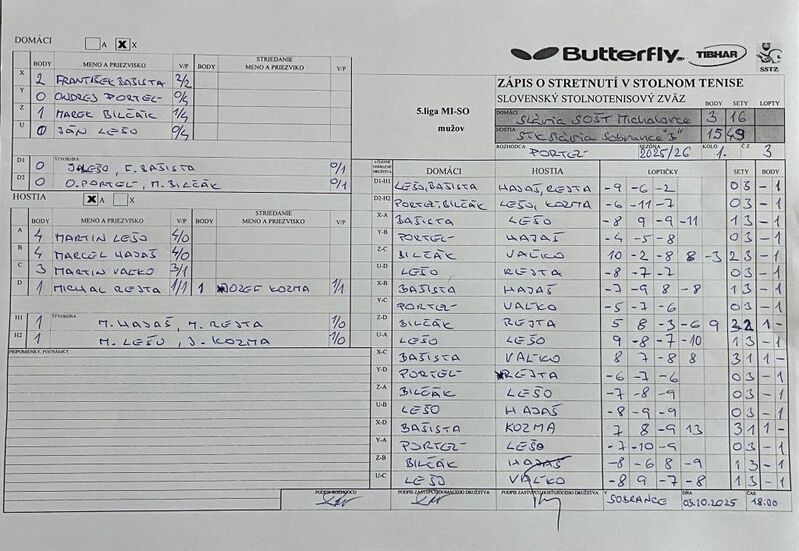 DOMÁCI A X X
BODY MENO A PRIEZVISKO V/P BODY STRIEDANIE MENO A PRIEZVISKO V/P
X 2 FRANTIŠEK BAŠISTA 2/2
Y 0 ONDREJ PORTEL 0/4
Z 1 MAREK BILČÁK 1/4
U 0 JÁN LEŠO 0/4
ŠTVORHRA
D1 0 J. LEŠO, F. BAŠISTA 0/1
D2 0 O. PORTEL, M. BILČÁK 0/1
HOSTIA X A X
BODY MENO A PRIEZVISKO V/P BODY STRIEDANIE MENO A PRIEZVISKO V/P
A 4 MARTIN LEŠO 4/0
B 4 MARCEL HAJAŠ 4/0
C 3 MARTIN VAĽKO 3/1
D 1 MICHAL REJTA 1/1 1 JOZEF KOZMA 1/1
ŠTVORHRA
H1 1 M. HAJAŠ, M. REJTA 1/0
H2 1 M. LEŠO, J. KOZMA 1/0
PRIPOMIENKY, POZNÁMKY
5.liga MI-SO
mužov
Butterfly TIBHAR SSTZ
ZÁPIS O STRETNUTÍ V STOLNOM TENISE
SLOVENSKÝ STOLNOTENISOVÝ ZVÄZ BODY SETY LOPTY
DOMÁCI Slávia SOŠT Michalovce 3 16
HOSTIA STK Slávia Sobrance "B" 15 49
ROZHODCA PORTEL SEZÓNA 2025/26 KOLO 1. Č.Z. 3
DOMÁCI HOSTIA LOPTIČKY SETY BODY
D1-H1 LEŠO, BAŠISTA HAJAŠ, REJTA -9 -6 -2 0 3 - 1
D2-H2 PORTEL, BILČÁK LEŠO, KOZMA -6 -11 -7 0 3 - 1
X-A BAŠISTA LEŠO -8 9 -9 -11 1 3 - 1
Y-B PORTEL HAJAŠ -4 -5 -8 0 3 - 1
Z-C BILČÁK VAĽKO 10 -2 -8 8 -3 2 3 - 1
U-D LEŠO REJTA -8 -7 -7 0 3 - 1
X-B BAŠISTA HAJAŠ -7 -9 8 -8 1 3 - 1
Y-C PORTEL VAĽKO -5 -7 -6 0 3 - 1
Z-D BILČÁK REJTA 5 8 -3 -6 9 3 2 1 -
U-A LEŠO LEŠO 9 -8 -7 -10 1 3 - 1
X-C BAŠISTA VAĽKO 8 7 -8 8 3 1 1 -
Y-D PORTEL REJTA -6 -7 -6 0 3 - 1
Z-A BILČÁK LEŠO -7 -8 -9 0 3 - 1
U-B LEŠO HAJAŠ -8 -9 -9 0 3 - 1
X-D BAŠISTA KOZMA 7 8 -9 13 3 1 1 -
Y-A PORTEL LEŠO -7 -10 -9 0 3 - 1
Z-B BILČÁK HAJAŠ -8 -6 8 -9 1 3 - 1
U-C LEŠO VAĽKO -8 9 -7 -8 1 3 - 1
PODPIS ROZHODCU PODPIS ZÁSTUPCU DOMÁCEHO DRUŽSTVA PODPIS ZÁSTUPCU HOSŤUJÚCEHO DRUŽSTVA V SOBRANCE DŇA 03.10.2025 ČAS 18.00